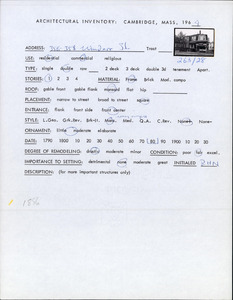 ARCHITECTURAL INVENTORY: CAMBRIDGE, MASS, 196
ADDRESS: St. Tract
263/28
USE: residential commercial religious
TYPE: single double row 2 deck 3 deck double 3d tenement Apart.
STORIES: 1 2 3 4 MATERIAL: Frame Brick Mod. compo
ROOF: gable front gable flank mansard flat hip
PLACEMENT: narrow to street broad to street square
ENTRANCE: flank front side front center
STYLE: L.Geo. Grk.Rev. Brk-It. Mans. Med. Q.A. C.Rev. None
ORNAMENT: little moderate elaborate
DATE: 1790 1800 10 20 30 40 50 60 70 80 90 1900 10 20 30
DEGREE OF REMODELING: drastic moderate minor CONDITION: poor fair excel.
IMPORTANCE TO SETTING: detrimental none moderate great INITIALED
DESCRIPTION: (for more important structures only)